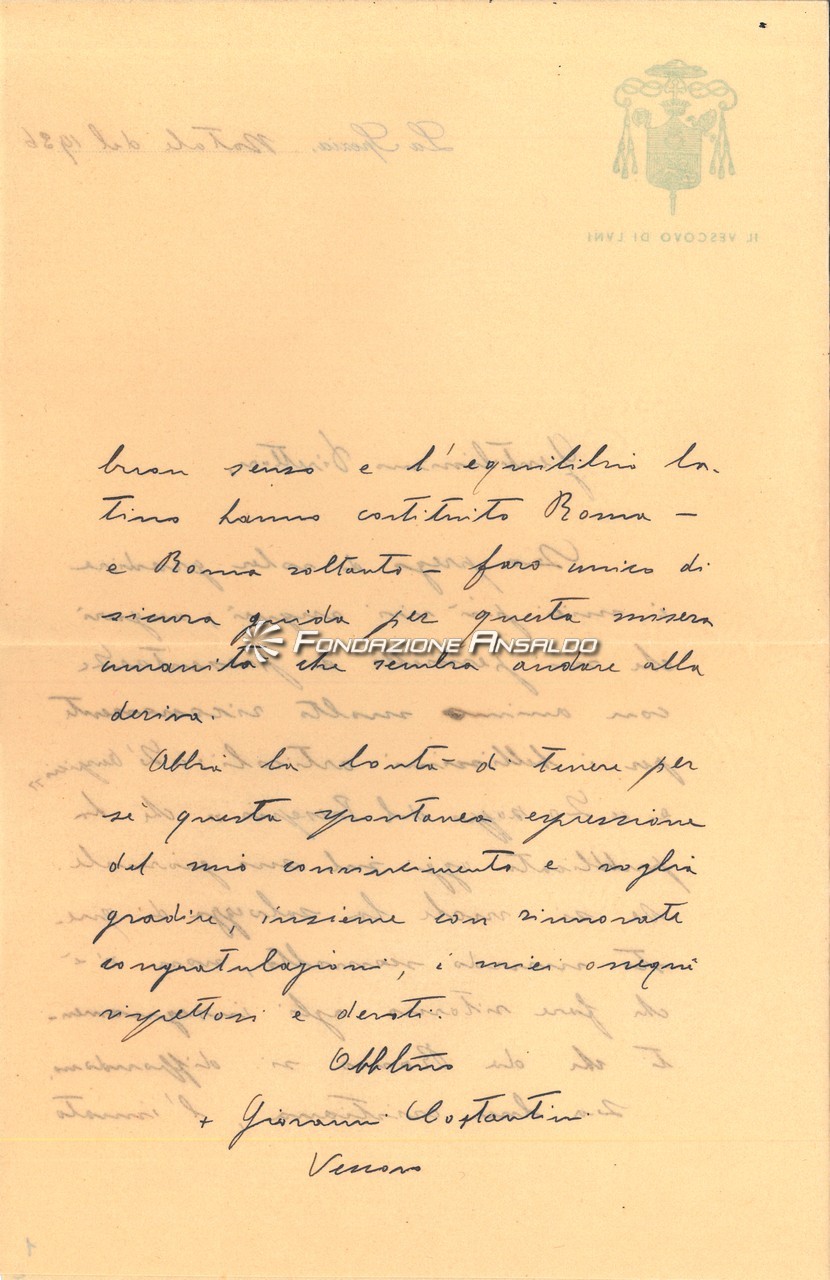 La Spezia. Natale del 1936
IL VESCOVO DI LVNI
buon senso e l'equilibrio la-
tino hanno costituito Roma —
e Roma soltanto — faro unico di
sicura guida per questa misera
umanità che sembra andare alla
deriva.
FONDAZIONE ANSALDO
Abbia la bontà di tenere per
sè questa spontanea espressione
del mio convincimento e voglia
gradire, insieme con rinnovate
congratulazioni, i miei ossequi
rispettosi e devoti.
Obblmo
+ Giovanni Costantini
Vescovo
1